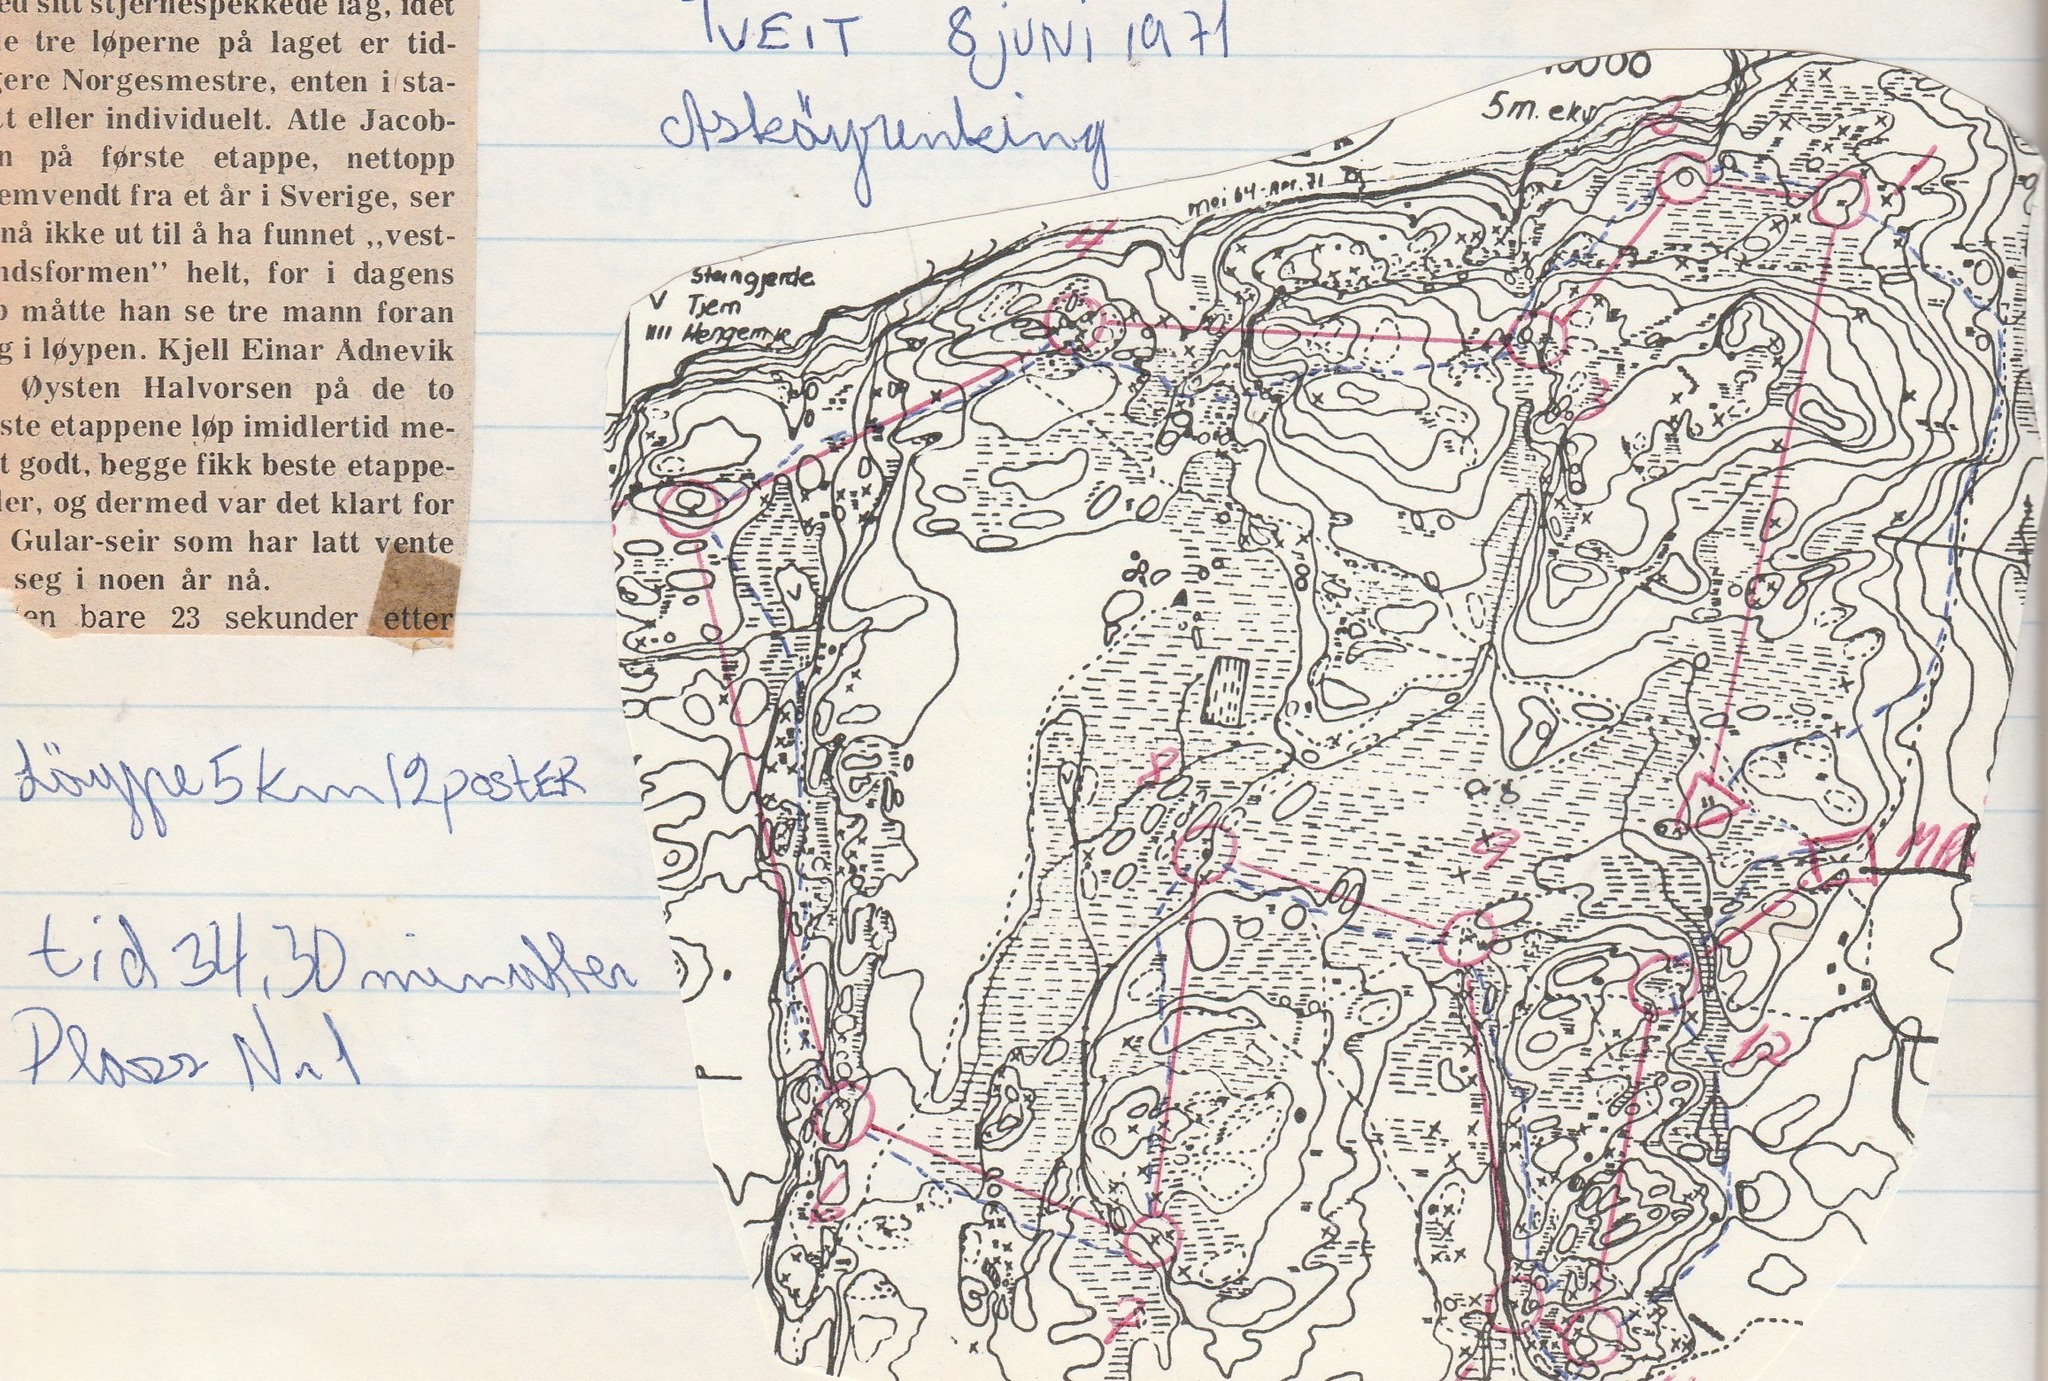 ed sitt stjernespekkede lag, idet
e tre løperne på laget er tid-
gere Norgesmestre, enten i sta-
tt eller individuelt. Atle Jacob-
n på første etappe, nettopp
emvendt fra et år i Sverige, ser
nå ikke ut til å ha funnet „vest-
ndsformen” helt, for i dagens
måtte han se tre mann foran
g i løypen. Kjell Einar Ådnevik
Øysten Halvorsen på de to
ste etappene løp imidlertid me-
t godt, begge fikk beste etappe-
ler, og dermed var det klart for
Gular-seir som har latt vente
seg i noen år nå.
en bare 23 sekunder etter
TVEIT 8 juni 1971
Asköyrenking
Löype 5 km 12 poster
tid 34,30 minutter
Plass Nr 1
10000
5 m. ekv
mai 64 - Apr. 71
Steingjerde
V Tjern
IIII Hengemyr
1
2
3
4
6
7
8
9
12